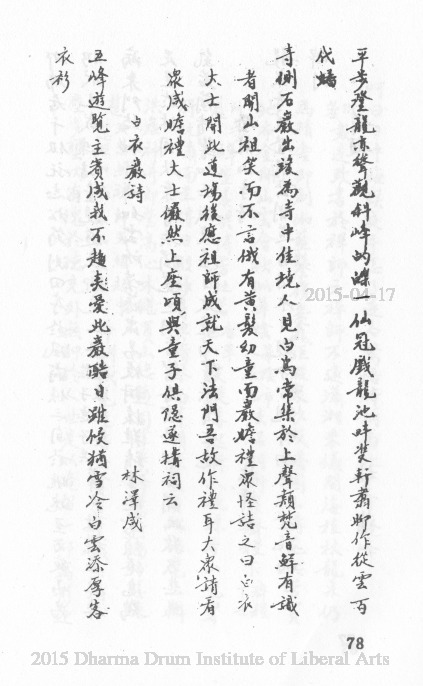 平步登龍亦聳觀斜峰的皪一仙冠戲龍池畔裝軒肅聊作從雲百
代蟠
寺側石巖出竣為寺中佳境人見白鳥常集於上聲類梵音鮮有識
者開山祖笑而不言俄有黃髮幼童向巖瞻禮眾怪詰之曰白衣
大士開此道場後應祖師成就天下法門吾故作禮耳大眾請看
眾咸瞻禮大士儼然上座頃與童子俱隱遂搆祠云
白衣巖詩
林澤咸
五峰遊覽主賓咸我不趨炎愛此巖酷日雖候猶雪冷白雲添厚客
衣衫
78
2015-04-17
2015 Dharma Drum Institute of Liberal Arts